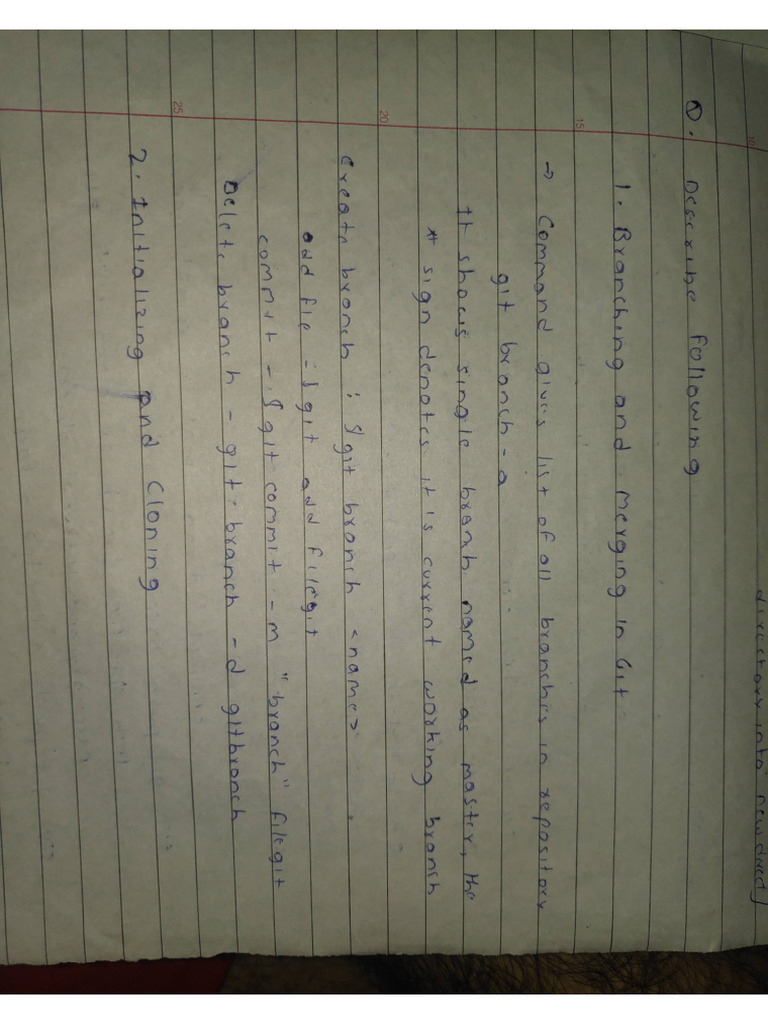 directory into new direct
Q. Describe following
1. Branching and merging in Git
→ Command gives list of all branches in repository
git branch - a
It shows single branch named as master, the
* sign denotes it is current working branch
Create branch : $git branch <name>
add file - $git add filegit
commit - $git commit - m "branch" filegit
Delete branch - git branch - d gitbranch
2. Initializing and Cloning
10
15
20
25